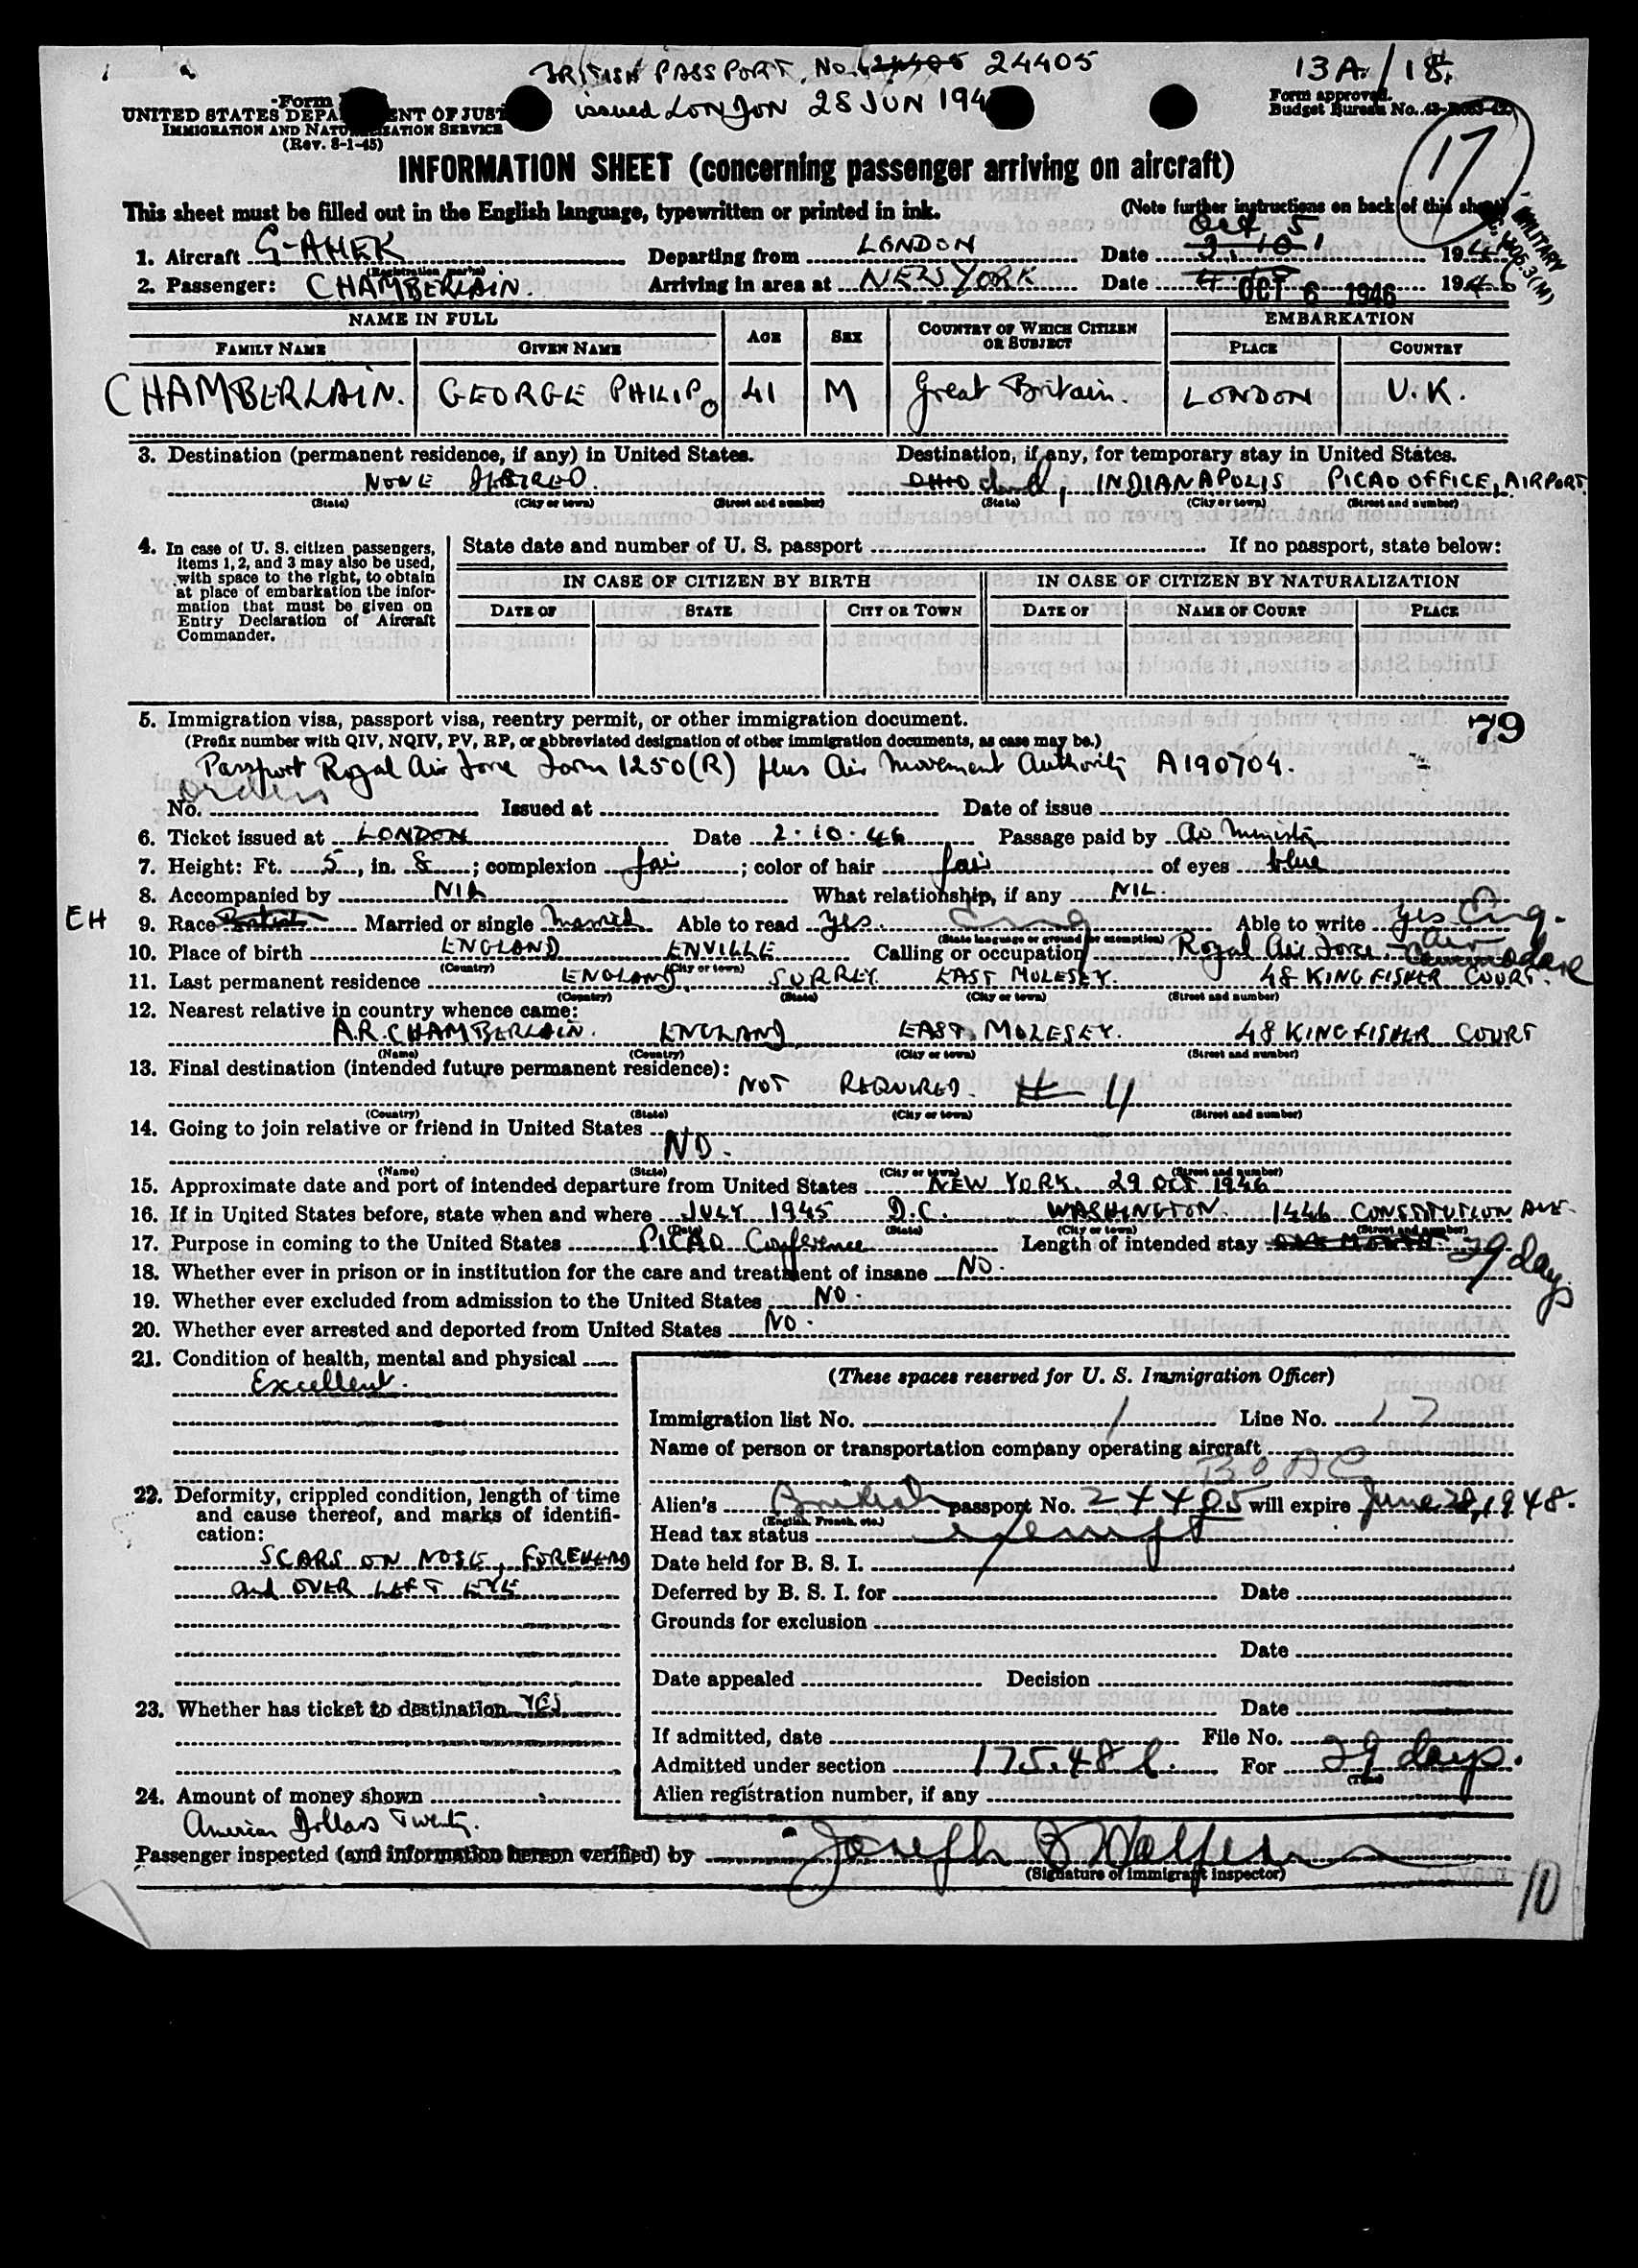 BRITISH PASSPORT. No. 24405 13A/18.
issued LONDON 28 JUN 194
Form
UNITED STATES DEPA ENT OF JUST
IMMIGRATION AND NATURALIZATION SERVICE
(Rev. 8-1-45)
Form approved.
Budget Bureau No. 43-
17
INFORMATION SHEET (concerning passenger arriving on aircraft)
This sheet must be filled out in the English language, typewritten or printed in ink. (Note further instructions on back of this sheet)
MILITARY
1. Aircraft G-AHEK Departing from LONDON Date Oct 5 3.10. 1946
(Registration marks)
2. Passenger: CHAMBERLAIN. Arriving in area at NEW YORK Date OCT 6 1946 1946
NAME IN FULL AGE SEX COUNTRY OF WHICH CITIZEN OR SUBJECT EMBARKATION
FAMILY NAME GIVEN NAME PLACE COUNTRY
CHAMBERLAIN. GEORGE PHILIP. 41 M Great Britain. LONDON U.K.
3. Destination (permanent residence, if any) in United States. Destination, if any, for temporary stay in United States.
NONE DESIRED. OHIO Ind, INDIANAPOLIS PICAO OFFICE, AIRPORT
(State) (City or town) (Street and number) (State) (City or town) (Street and number)
4. In case of U. S. citizen passengers, items 1, 2, and 3 may also be used, with space to the right, to obtain at place of embarkation the information that must be given on Entry Declaration of Aircraft Commander.
State date and number of U. S. passport If no passport, state below:
IN CASE OF CITIZEN BY BIRTH IN CASE OF CITIZEN BY NATURALIZATION
DATE OF STATE CITY OR TOWN DATE OF NAME OF COURT PLACE
5. Immigration visa, passport visa, reentry permit, or other immigration document. 79
(Prefix number with QIV, NQIV, PV, RP, or abbreviated designation of other immigration documents, as case may be.)
Passport Royal Air Force Form 1250(R) plus Air Movement Authority A190704.
orders
No. Issued at Date of issue
6. Ticket issued at LONDON Date 2.10.46 Passage paid by Air Ministry
7. Height: Ft. 5, in. 8; complexion fair; color of hair fair of eyes blue
8. Accompanied by NIL What relationship, if any NIL.
EH 9. Race British Married or single Married Able to read yes. Eng Able to write yes Eng.
(State language or ground for exemption)
10. Place of birth ENGLAND ENVILLE Calling or occupation Royal Air Force - Air Commodore
(Country) (City or town)
11. Last permanent residence ENGLAND. SURREY. EAST MOLESEY. 48 KINGFISHER COURT.
(Country) (State) (City or town) (Street and number)
12. Nearest relative in country whence came:
A.R. CHAMBERLAIN. ENGLAND EAST MOLESEY. 48 KINGFISHER COURT
(Name) (Country) (City or town) (Street and number)
13. Final destination (intended future permanent residence):
NOT REQUIRED.
(Country) (State) (City or town) (Street and number)
14. Going to join relative or friend in United States
NO.
(Name) (State) (City or town) (Street and number)
15. Approximate date and port of intended departure from United States NEW YORK. 29 OCT 1946
16. If in United States before, state when and where JULY 1945 D.C. WASHINGTON. 1446 CONSTITUTION AVE.
(Date) (State) (City or town) (Street and number)
17. Purpose in coming to the United States PICAO Conference Length of intended stay ONE MONTH 29 days
18. Whether ever in prison or in institution for the care and treatment of insane NO.
19. Whether ever excluded from admission to the United States NO.
20. Whether ever arrested and deported from United States NO.
21. Condition of health, mental and physical
Excellent.
22. Deformity, crippled condition, length of time and cause thereof, and marks of identification:
SCARS ON NOSE, FOREHEAD
and OVER LEFT EYE
23. Whether has ticket to destination YES
24. Amount of money shown
American Dollars Twenty.
(These spaces reserved for U. S. Immigration Officer)
Immigration list No. 1 Line No. 17
Name of person or transportation company operating aircraft
BOAC
Alien's British passport No. 24405 will expire June 28, 1948.
(English, French, etc.)
Head tax status exempt
Date held for B. S. I.
Deferred by B. S. I. for Date
Grounds for exclusion
Date
Date appealed Decision
Date
If admitted, date File No.
Admitted under section 175.48 For 29 days.
(Time)
Alien registration number, if any
Passenger inspected (and information hereon verified) by Joseph
(Signature of immigrant inspector)
10